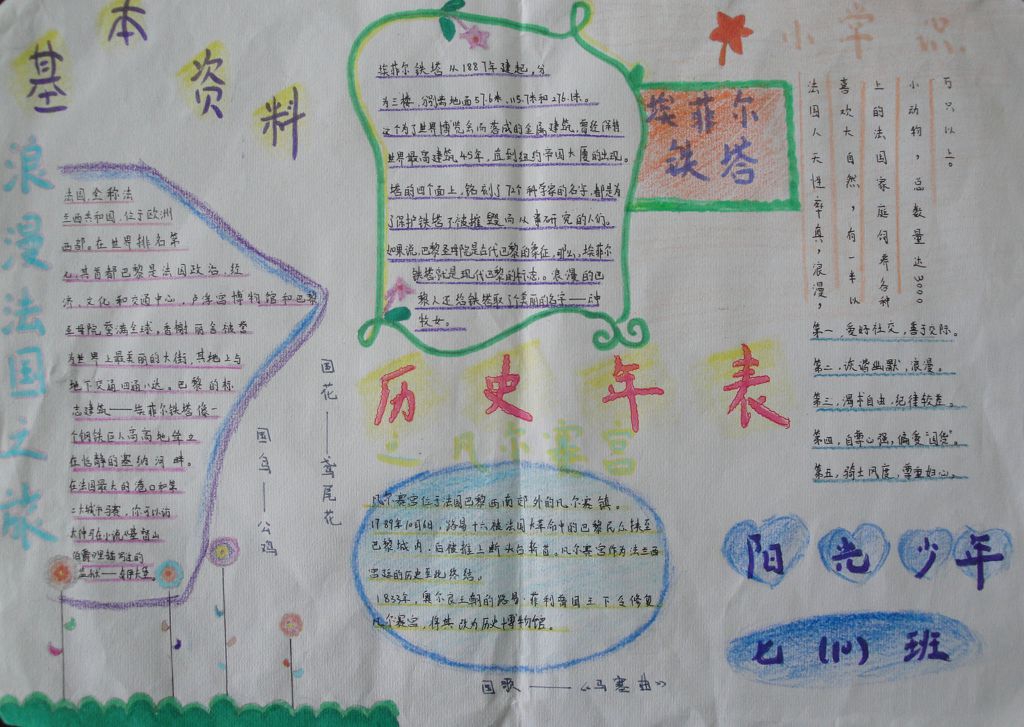 基本资料
浪漫法国之旅
法国,全称法
兰西共和国,位于欧洲
西部。在世界排名第
七,其首都巴黎是法国政治,经
济,文化和交通中心,卢浮宫博物馆和巴黎
圣母院誉满全球,香榭丽舍被誉
为世界上最美丽的大街,其地上与
地下交通四通八达。巴黎的标
志建筑——埃菲尔铁塔像一
个钢铁巨人高高地伫立
在恬静的塞纳河畔。
在法国最大的港口和第
二大城市马赛,你可以访
大仲马在小说《基督山
伯爵》里描写过的
国鸟——公鸡
国花——鸢尾花
埃菲尔铁塔从1887年建起,分
为三楼,分别离地面57.6米,115.7米和276.1米。
这个为了世界博览会而落成的金属建筑,曾经保持
世界最高建筑45年,直到纽约帝国大厦的出现。
塔的四个面上,铭刻了72个科学家的名字,都是为
了保护铁塔不被摧毁而从事研究的人们。
如果说,巴黎圣母院是古代巴黎的象征,那么,埃菲尔
铁塔就是现代巴黎的标志。浪漫的巴
黎人还给铁塔取了个美丽的名字——云中
牧女。
埃菲尔
铁塔
历史年表
之凡尔赛宫
凡尔赛宫位于法国巴黎西南郊外的凡尔赛镇。
1789年10月6日,路易十六被法国大革命中的巴黎民众挟至
巴黎城内,后被推上断头台斩首,凡尔赛宫作为法兰西
宫廷的历史至此终结。
1833年,奥尔良王朝的路易·菲利普国王下令修复
凡尔赛宫,将其改为历史博物馆。
国歌——《马赛曲》
小常识
法国人天性率真,浪漫,
喜欢大自然,有一半以
上的法国家庭饲养各种
小动物,总数量达3000
万只以上。
第一,爱好社交,善于交际。
第二,诙谐幽默,浪漫。
第三,渴求自由,纪律较差。
第四,自尊心强,偏爱"国货"。
第五,骑士风度,尊重妇女。
阳光少年
七(10)班